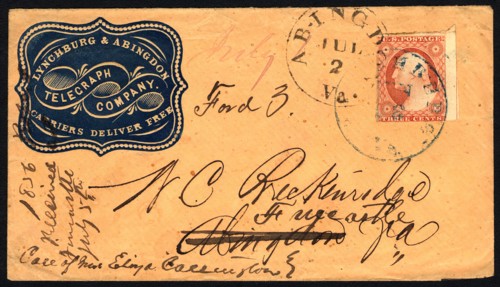 LYNCHBURG & ABINGDON
TELEGRAPH
COMPANY.
CARRIERS DELIVER FREE
ABINGDON
JUL
2
Va.
U.S. POSTAGE
THREE CENTS
Ford 3.
N C Breckenridge
Fincastle
Abingdon Va
1856
Received
Fincastle
July 5th
Care of